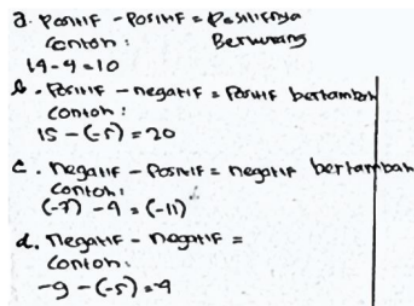 a. Positif - Positif = Positifnya
Contoh : Berkurang
14 - 4 = 10
b. Positif - negatif = Positif bertambah
Contoh :
15 - (-5) = 20
c. negatif - Positif = negatif bertambah
Contoh :
(-7) - 4 = (-11)
d. negatif - negatif =
Contoh :
-9 - (-5) = -4